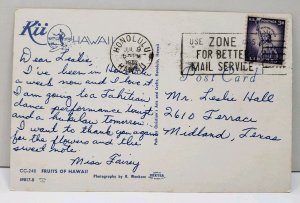 Kii HAWAII
Dear Leslie,
I've been in Honolulu
a week now and I love it.
I am going to a Tahitian
dance performance tonight
and a hukelau tomorrow.
I want to thank you again
for the flowers and the
sweet note.
Miss Fairey
CC-240 FRUITS OF HAWAII
Photography by R. Wenkam
HONOLULU
JUL 9
HAWAII
USE ZONE
FOR BETTER
MAIL SERVICE
Post Card
Mr. Leslie Hall
2610 Terrace
Midland, Texas